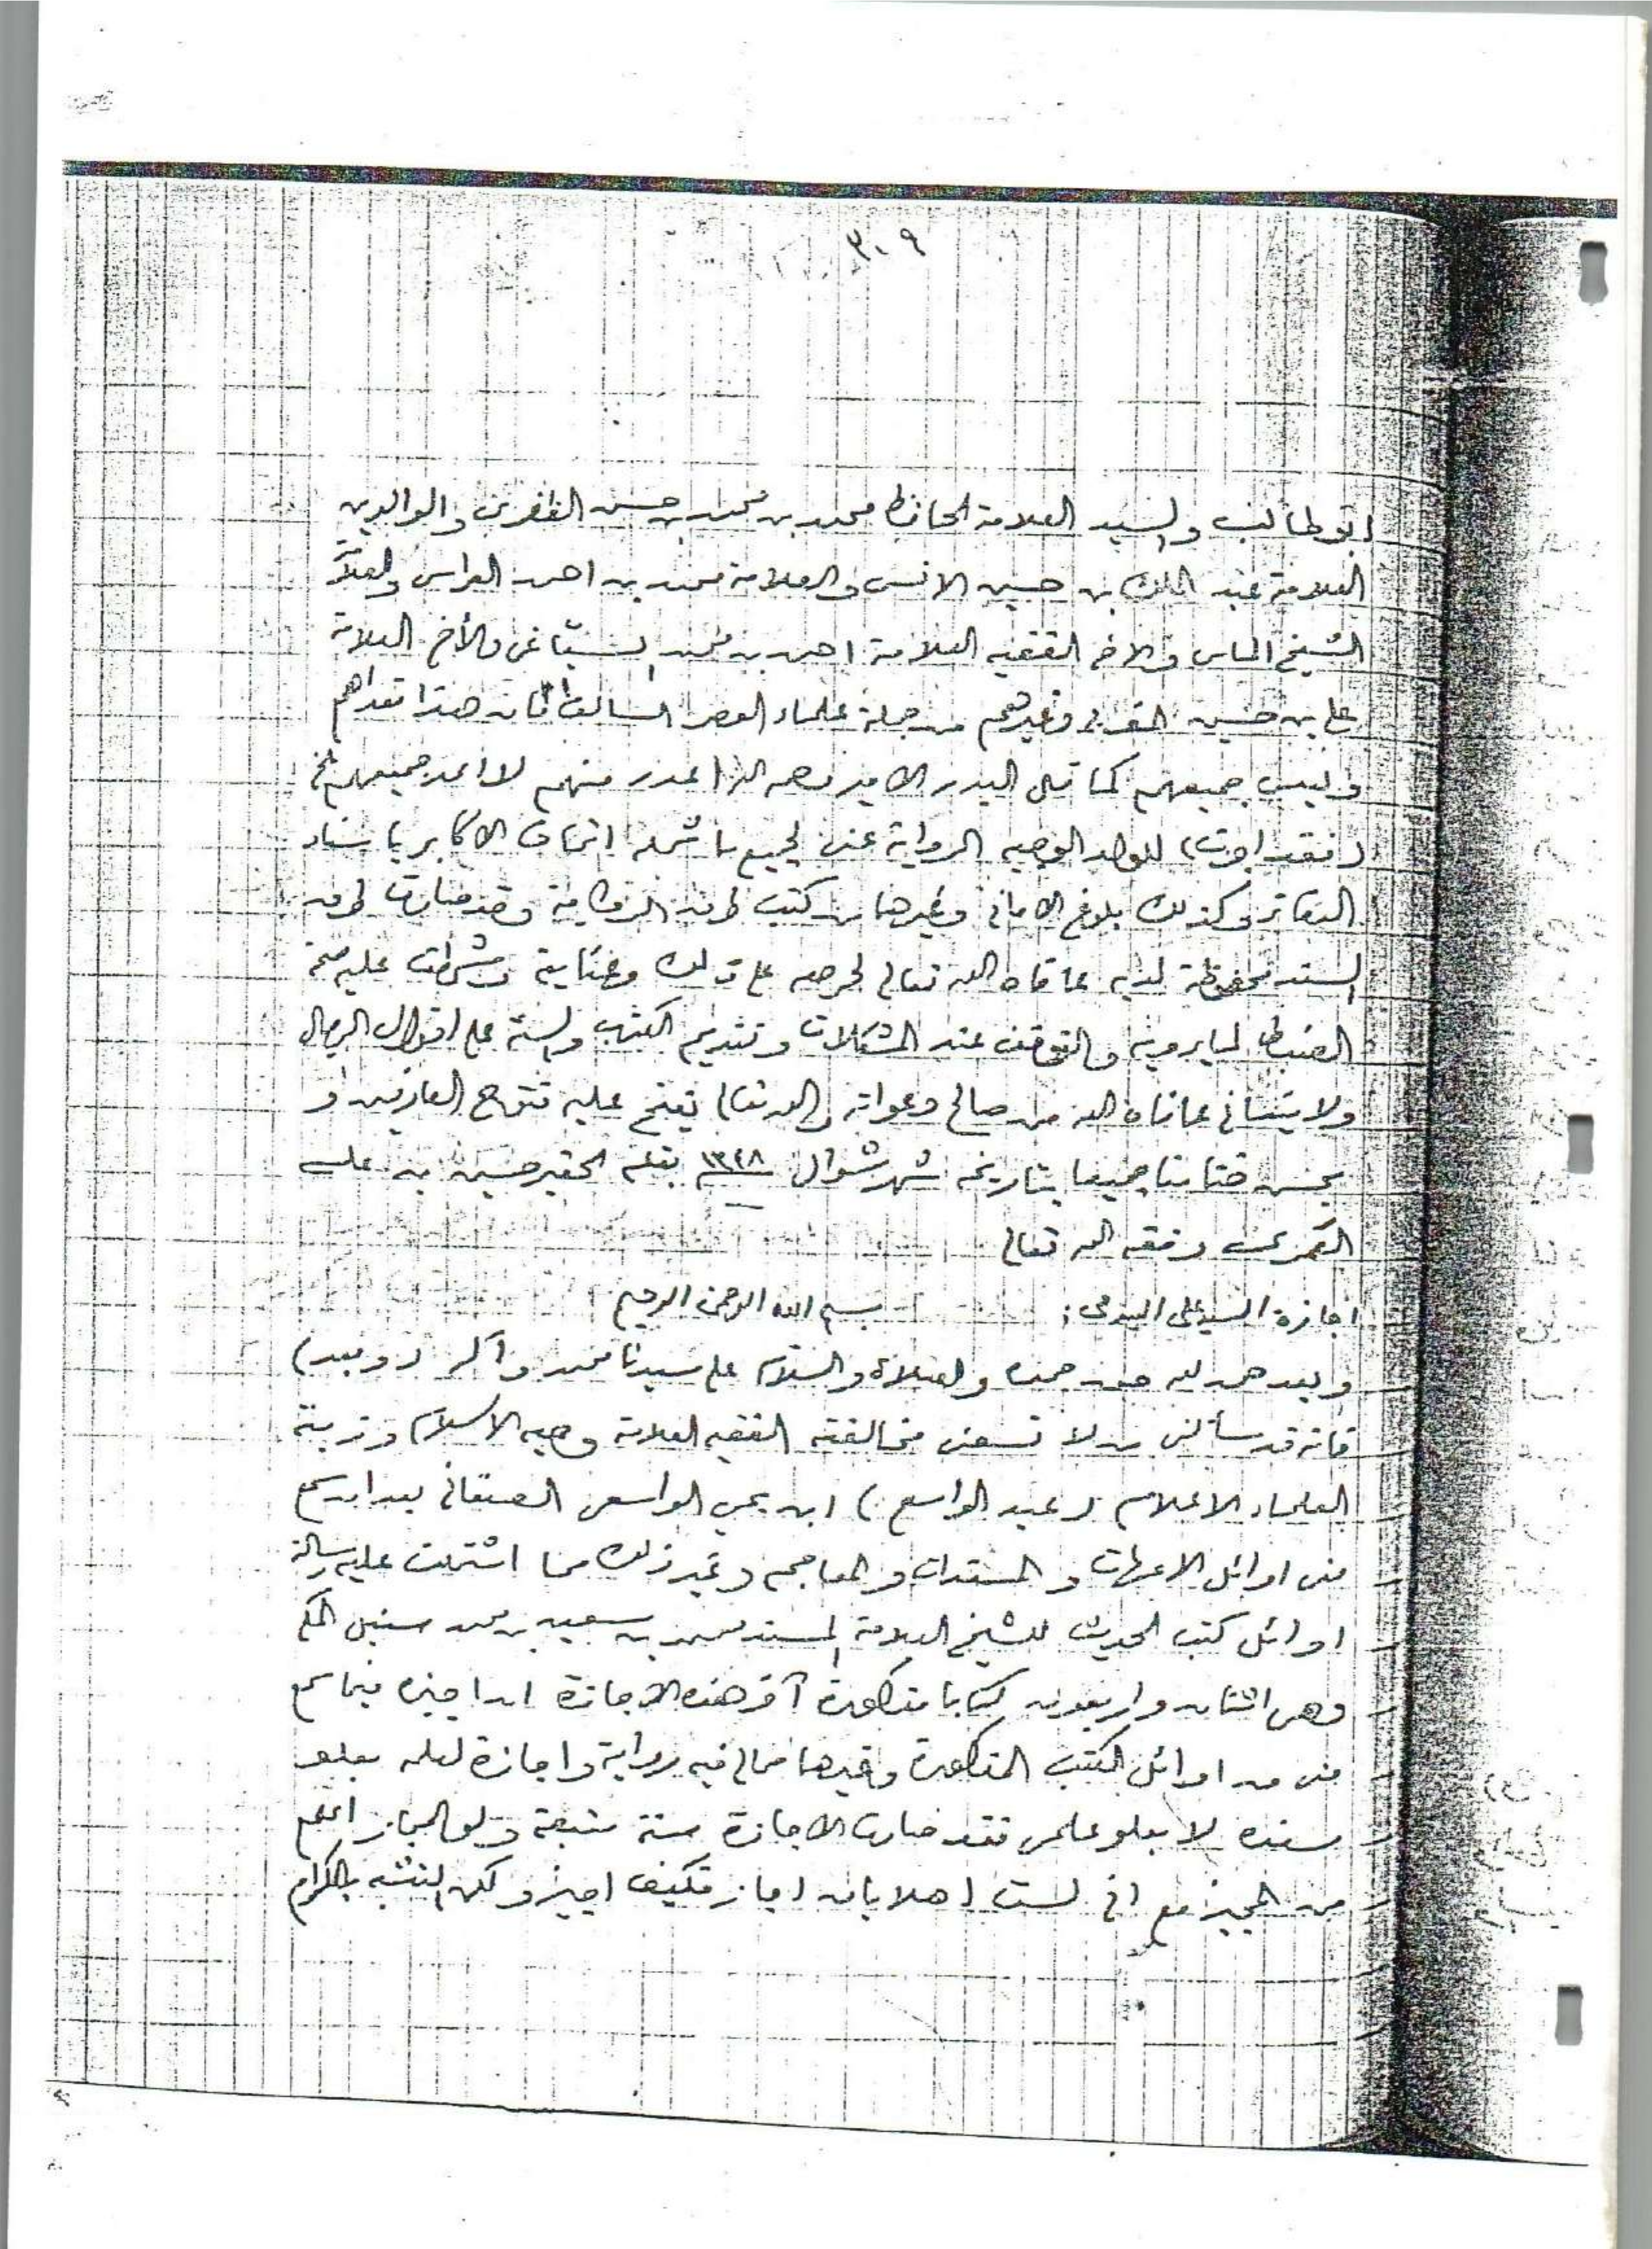 ٣٠٩
ابو طالب والسيد العلامة الحافظ محمد بن محمد بن حسن الظفري والوالدين
العلامة عبد الملك بن حسين الانسي والعلامة محمد بن احمد العراسي والعلا
الشيخ الماس والاخ الفقيه العلامة احمد بن محمد السياغي والأخ العلامة
علي بن حسين المغربي وغيرهم من جملة علماء العصر السالف فان هذا تعدادهم
وليس جميعهم كما قال البدر الامير رحمه الله اعدد منهم لا اعد جميعهم الخ
(فقد اجزت) للولد الوجيه الرواية عني لجميع ما شمله اتحاف الاكابر باسناد
الدفاتر وكذلك بلاغ الاماني وغيرها من كتب طرق الرواية وقد صارت طرق
السند محفوظة لديه عافاه الله تعالى لحرصه على ذلك وعنايته وشرطت عليه صحة
الضبط لما يرويه والتوقف عند المشكلات وتقديم الكتاب والسنة على اقوال الرجال
ولا ينساني عافاه الله من صالح دعواته والله تعالى يفتح عليه فتوح العارفين و
يحسن ختامنا جميعا بتاريخه شهر شوال ١٣٤٨ بقلم الحقير حسين بن علي
العمري وفقه الله تعالى
اجازة السيد علي السدمي : بسم الله الرحمن الرحيم
وبعد حمد لله حق حمده والصلاة والسلام على سيدنا محمد وآله (وبعد)
فانه قد سألني من لا تسعني مخالفته الفقيه العلامة وجيه الاسلام وزينة
العلماء الاعلام (عبد الواسع) ابن يحيى الواسعي الصنعاني بعد ان سمع
مني اوائل الامهات والمسندات والمعاجم وغير ذلك مما اشتملت عليه رسالة
اوائل كتب الحديث للشيخ العلامة المسند محمد بن سعيد بن محمد سنبل المكي
وهي اثنان واربعون كتابا مذكورة آخر هذه الاجازة ان اجيزه فيما سمع
مني من اوائل الكتب المذكورة وغيرها مما لي فيه رواية واجازة لعله بعلو
سنده لا بعلو علمي فقد صارت الاجازة سنة متبعة ولو المجاز اعلم
من المجيز مع اني لست اهلا بان اجاز فكيف اجيز ولكن التشبه بالكرام